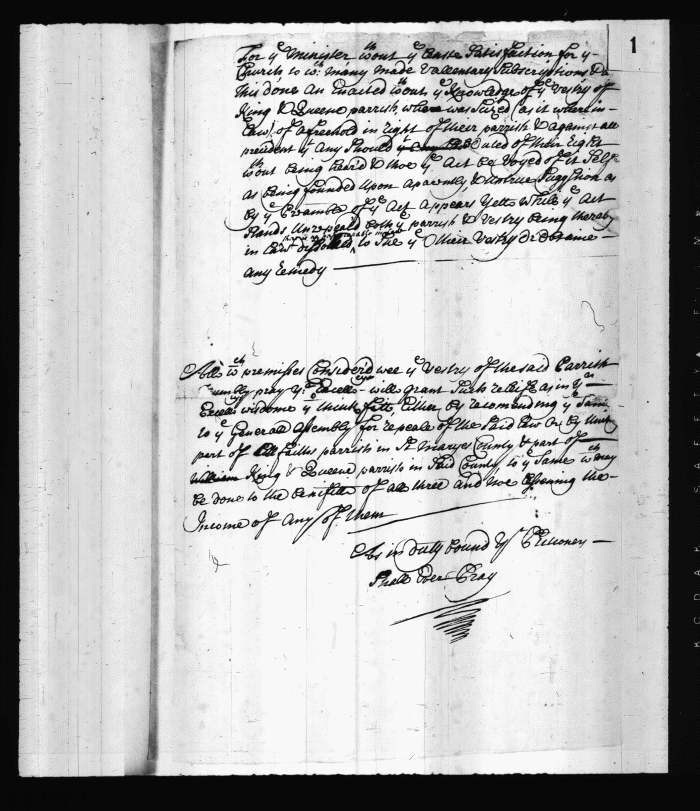 1
For yͤ Minister wᵗʰout yͤ Least Satisfaction for yͤ
Church to wᶜʰ many made Vallentary Subscriptions &
this done an Enacted wᵗʰout yͤ Knowledge of yͤ Vestry of
King & Queene parrish, was Seized (as it were in
Law) of a freehold in right of their parrish & against all
president if any Should be outed of their Right
wᵗʰout being hear'd & thoe yͤ Act be Voyed of it Selfe
as being founded upon & untrue Suggstion as
by yͤ Preamble of yͤ Act appears Yett while yͤ Act
Stands Unrepeald both yͤ parrish & Vestry being thereby
in Law dissolved to Sue yͤ their Vestry
any remedy
All wᶜʰ premisses Consider'd wee yͤ Vestry of the said Parrish
humbly pray yͬ Excellᶜʸ will grant Such releife as in yͬ
Excellˢ wisdome yͤ think fitt Either by recomending yͤ Same
to yͤ Generall Assembly for repeale of the Said Law Or by
part of All Faiths parrish in Sᵗ Maryes County & part of
King & Queene parrish in Said County to yͤ Same wᶜʰ may
be done to the benifitt of all three and not the
Income of Any of them
As in duty bound yͬ Petitioners
Shall Ever Pray